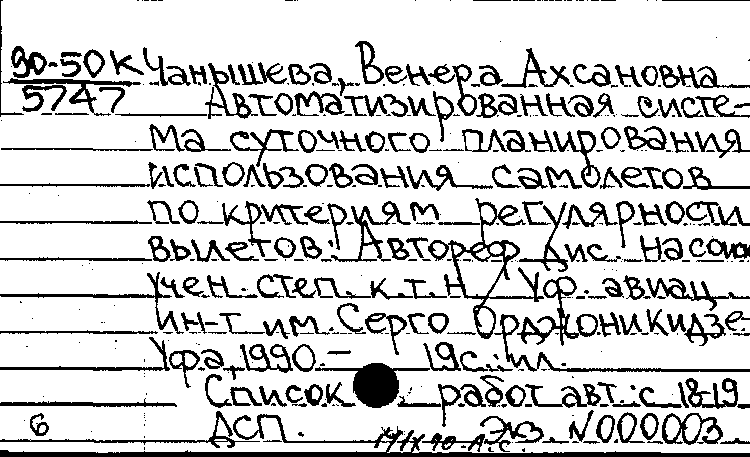 90-50К Чанышева, Венера Ахсановна
5747 Автоматизированная систе-
ма суточного планирования
использования самолетов
по критериям регулярности
вылетов: Автореф дис. на соиск
учен. степ. к.т.н / Уф. авиац.
ин-т им. Серго Орджоникидзе
Уфа, 1990.- 19с.: ил.
Список работ авт.: с 18-19
6 ДСП. Экз. N000003.